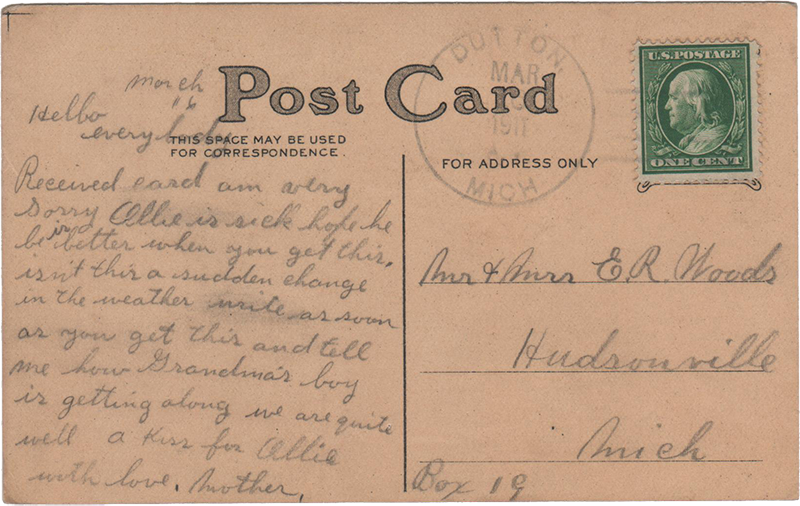 March
16
Hello
everybody
Received card am very
sorry Ollie is sick hope he
be is better when you get this.
isn't this a sudden change
in the weather write as soon
as you get this and tell
me how Grandma's boy
is getting along we are quite
well a Kiss for Ollie
with love. Mother.
Post Card
THIS SPACE MAY BE USED
FOR CORRESPONDENCE.
FOR ADDRESS ONLY
DUTTON
MAR
1911
MICH
U.S. POSTAGE
ONE CENT
Mr & Mrs E R. Woods
Hudsonville
Mich
Box 19